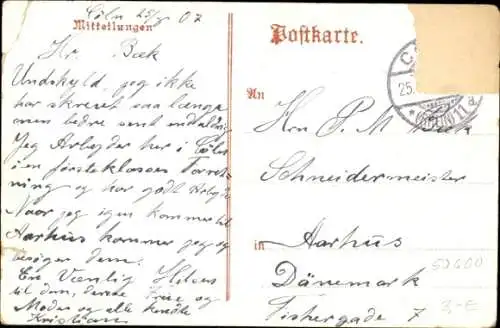 Cöln 25/7 07
Mitteilungen
Hr. Bæk
Undskyld jeg ikke
har skrevet saa længe
men bedre sent end aldrig
Jeg Arbejder her i Cöln
i en førsteklasses Forret-
ning og har godt Arbejde
Naar jeg igen kommer til
Aarhus kommer jeg og
besøger dem.
En Venlig Hilsen
til dem, deres Frue og
Moder og alle kendte
Kristian
Postkarte.
C
25.
An
Hrn P. M. Bæk
Schneidermeister
in Aarhus
Dänemark
Fishergade 7